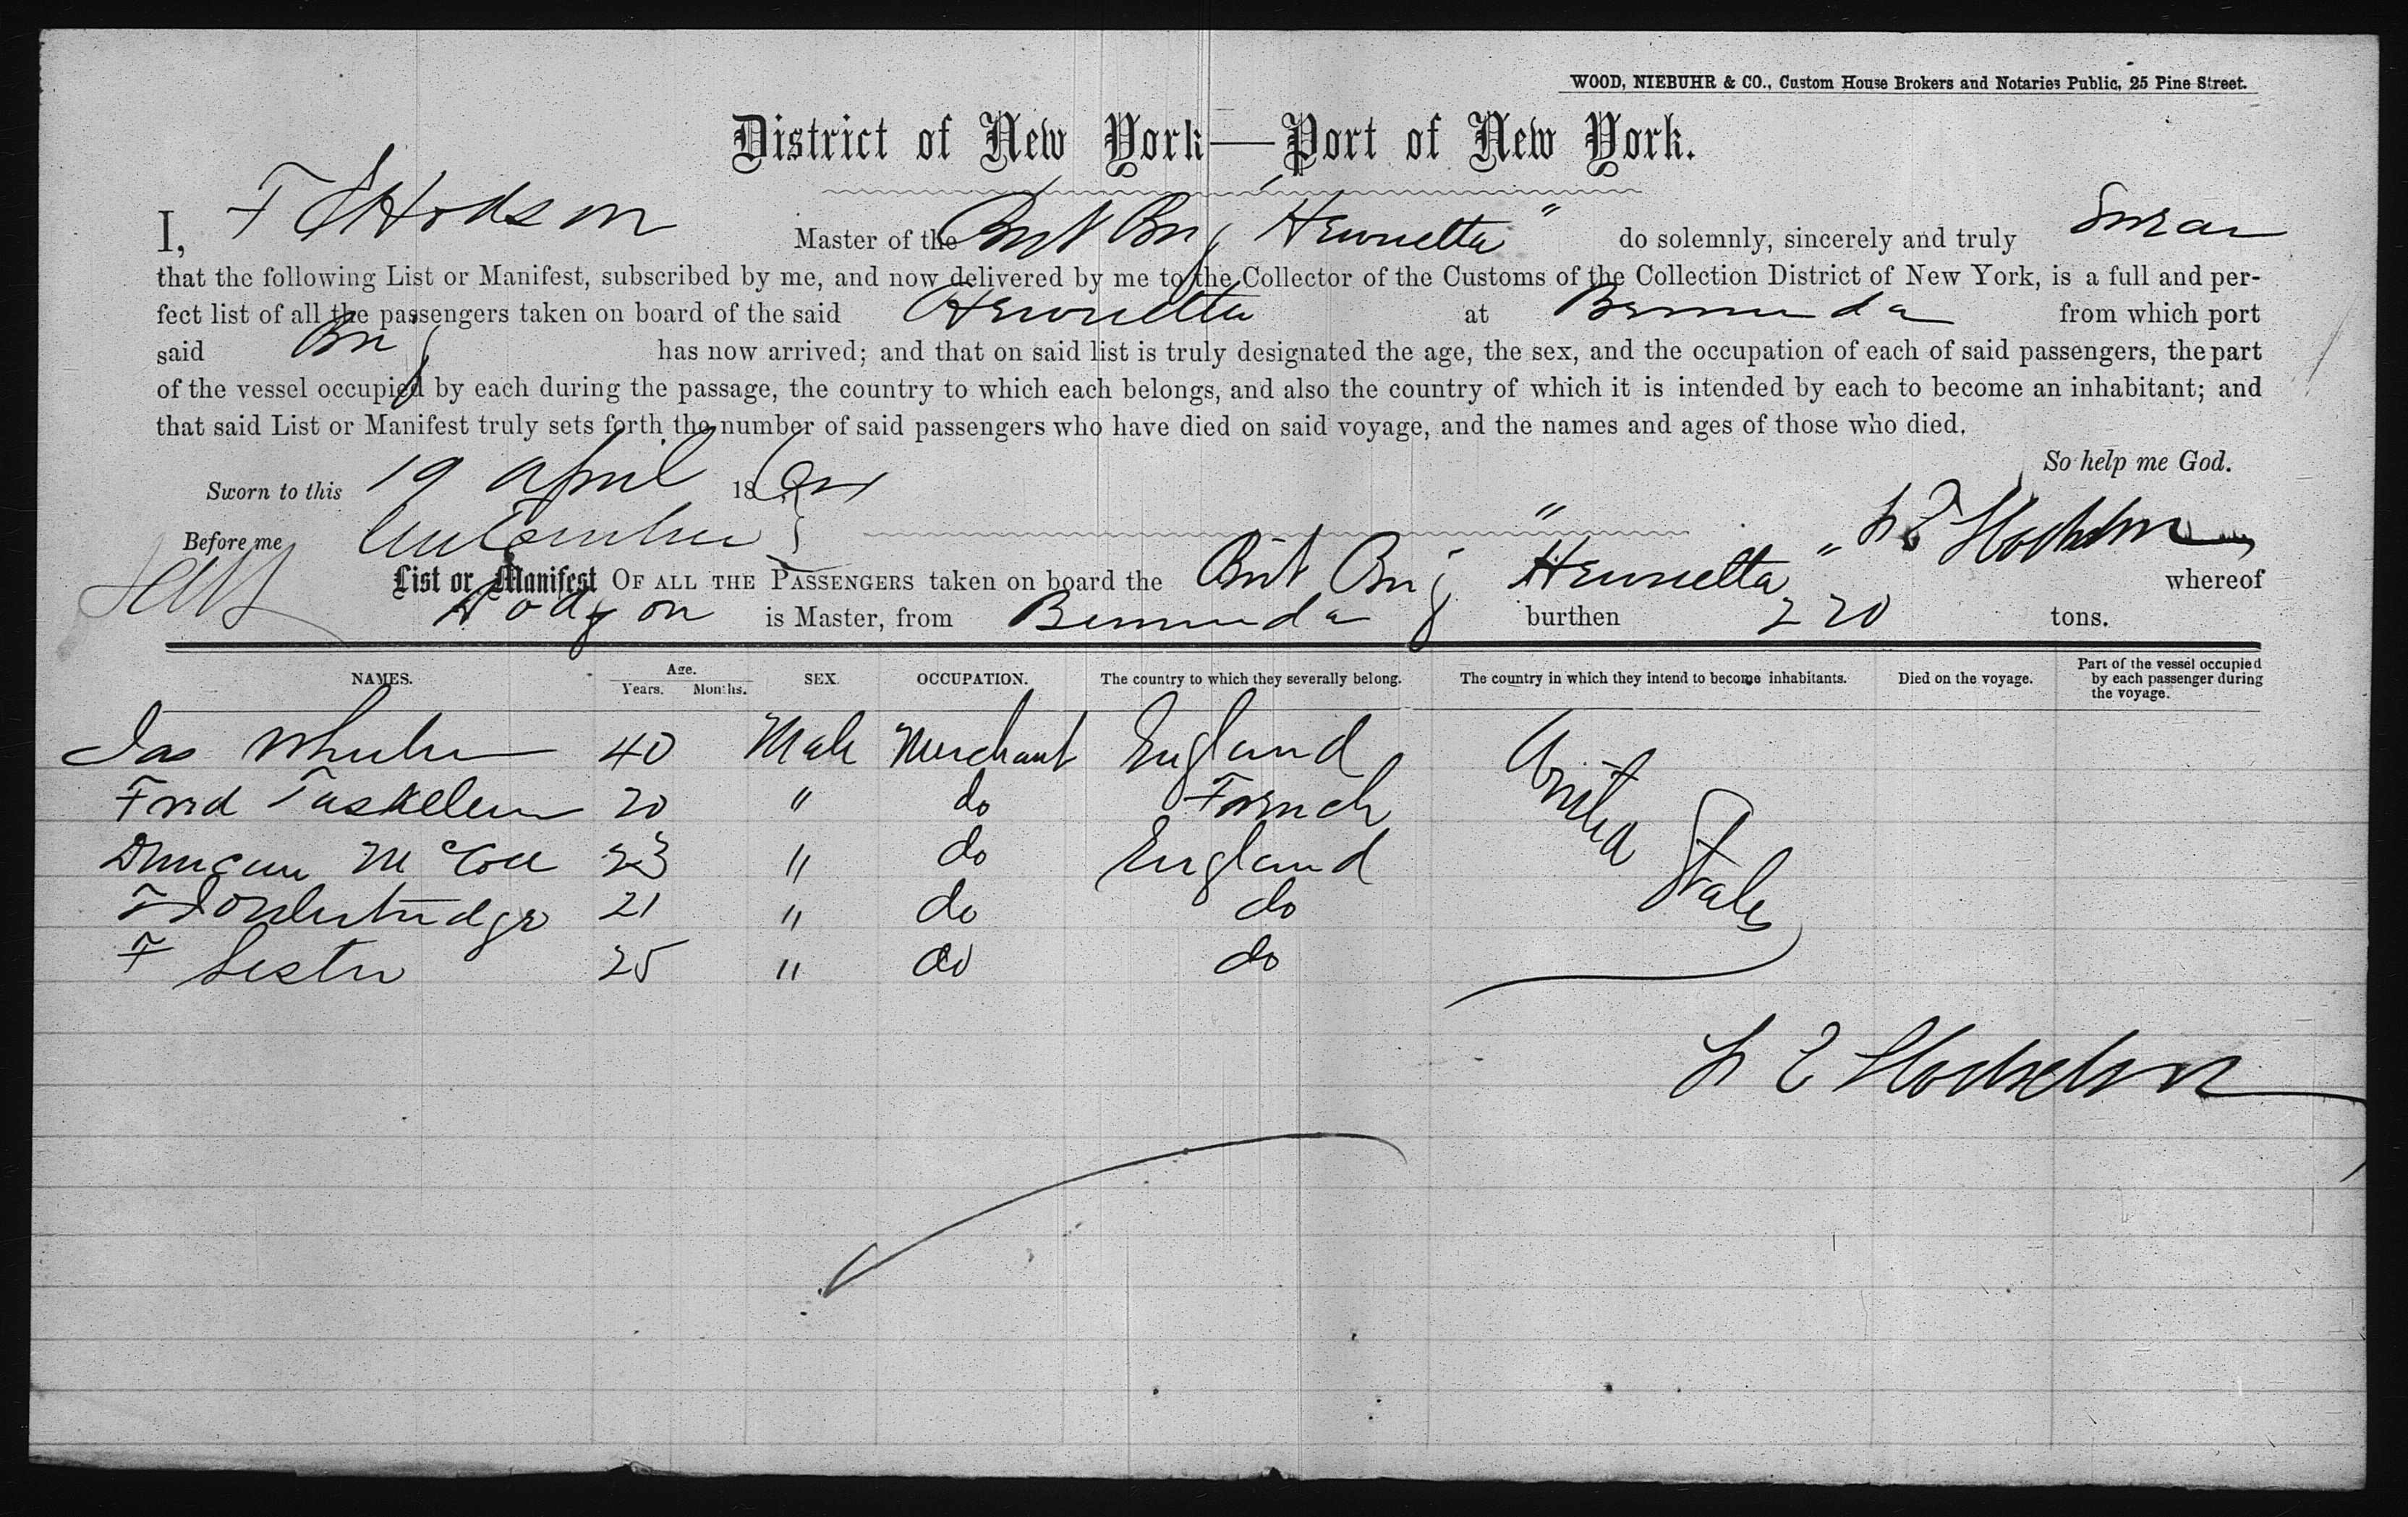 WOOD, NIEBUHR & CO., Custom House Brokers and Notaries Public, 25 Pine Street.
District of New York—Port of New York.
I, F E Hodson Master of the Brit Brig "Henrietta" do solemnly, sincerely and truly Swear
that the following List or Manifest, subscribed by me, and now delivered by me to the Collector of the Customs of the Collection District of New York, is a full and per-
fect list of all the passengers taken on board of the said Henrietta at Bermuda from which port
said Brig has now arrived; and that on said list is truly designated the age, the sex, and the occupation of each of said passengers, the part
of the vessel occupied by each during the passage, the country to which each belongs, and also the country of which it is intended by each to become an inhabitant; and
that said List or Manifest truly sets forth the number of said passengers who have died on said voyage, and the names and ages of those who died.
So help me God.
Sworn to this 19 April 18
Before me
List or Manifest OF ALL THE PASSENGERS taken on board the Brit Brig "Henrietta" whereof
Hodgson is Master, from Bermuda burthen 220 tons.
NAMES. Age. Years. Months. SEX. OCCUPATION. The country to which they severally belong. The country in which they intend to become inhabitants. Died on the voyage. Part of the vessel occupied by each passenger during the voyage.
Jas Wheeler 40 Male Merchant England United States
Fred 20 " do French
Duncan McColl 23 " do England
F 21 " do do
F Lester 25 " do do